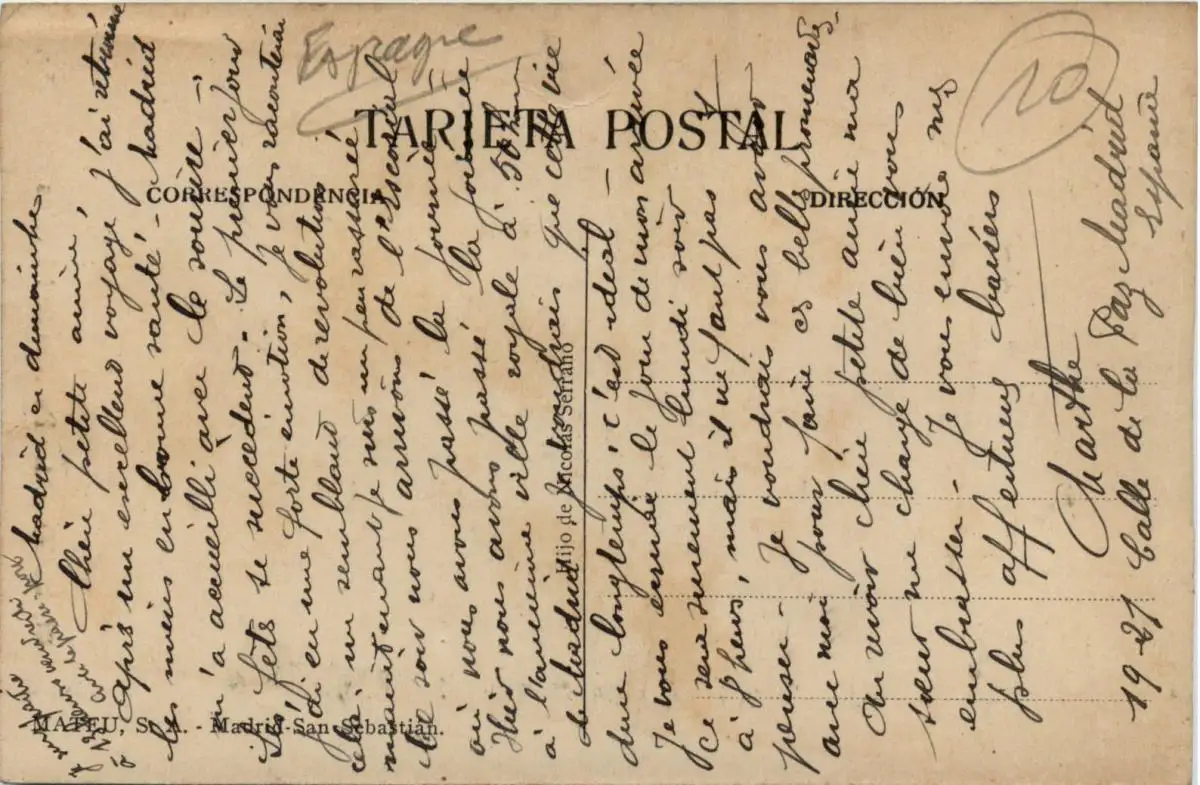 Espagne
10
TARJETA POSTAL
CORRESPONDENCIA
DIRECCIÓN
Hijo de Nicolas Serrano
MATEU, S. A. - Madrid-San Sebastián.
Madrid ce dimanche
Chère petite amie,
après un excellent voyage, j'ai retrouvé
les miens en bonne santé - Madrid
m'a accueilli avec le sourire -
Les fêtes se succèdent. Le premier jour
j'ai eu une forte émotion, je vous raconterai
cela un semblant de révolution
maintenant je suis un peu rassurée
ce soir nous arrivons de l'Escorial
où nous avons passé la journée
Hier nous avons passé la journée
à l'ancienne ville royale à 50 km
de Madrid je voudrais que cette vie
dure longtemps, c'est idéal -
Je vous écrirai le jour de mon arrivée
Ce sera sûrement lundi soir
à heures, mais il ne faut pas y
penser - Je voudrais vous avoir
avec moi pour faire ces belles promenades
Au revoir chère petite amie ma
sœur me charge de bien vous
embrasser - Je vous envoie mes
plus affectueux baisers
Marthe
19-21 Calle de la Paz Madrid
Espagne